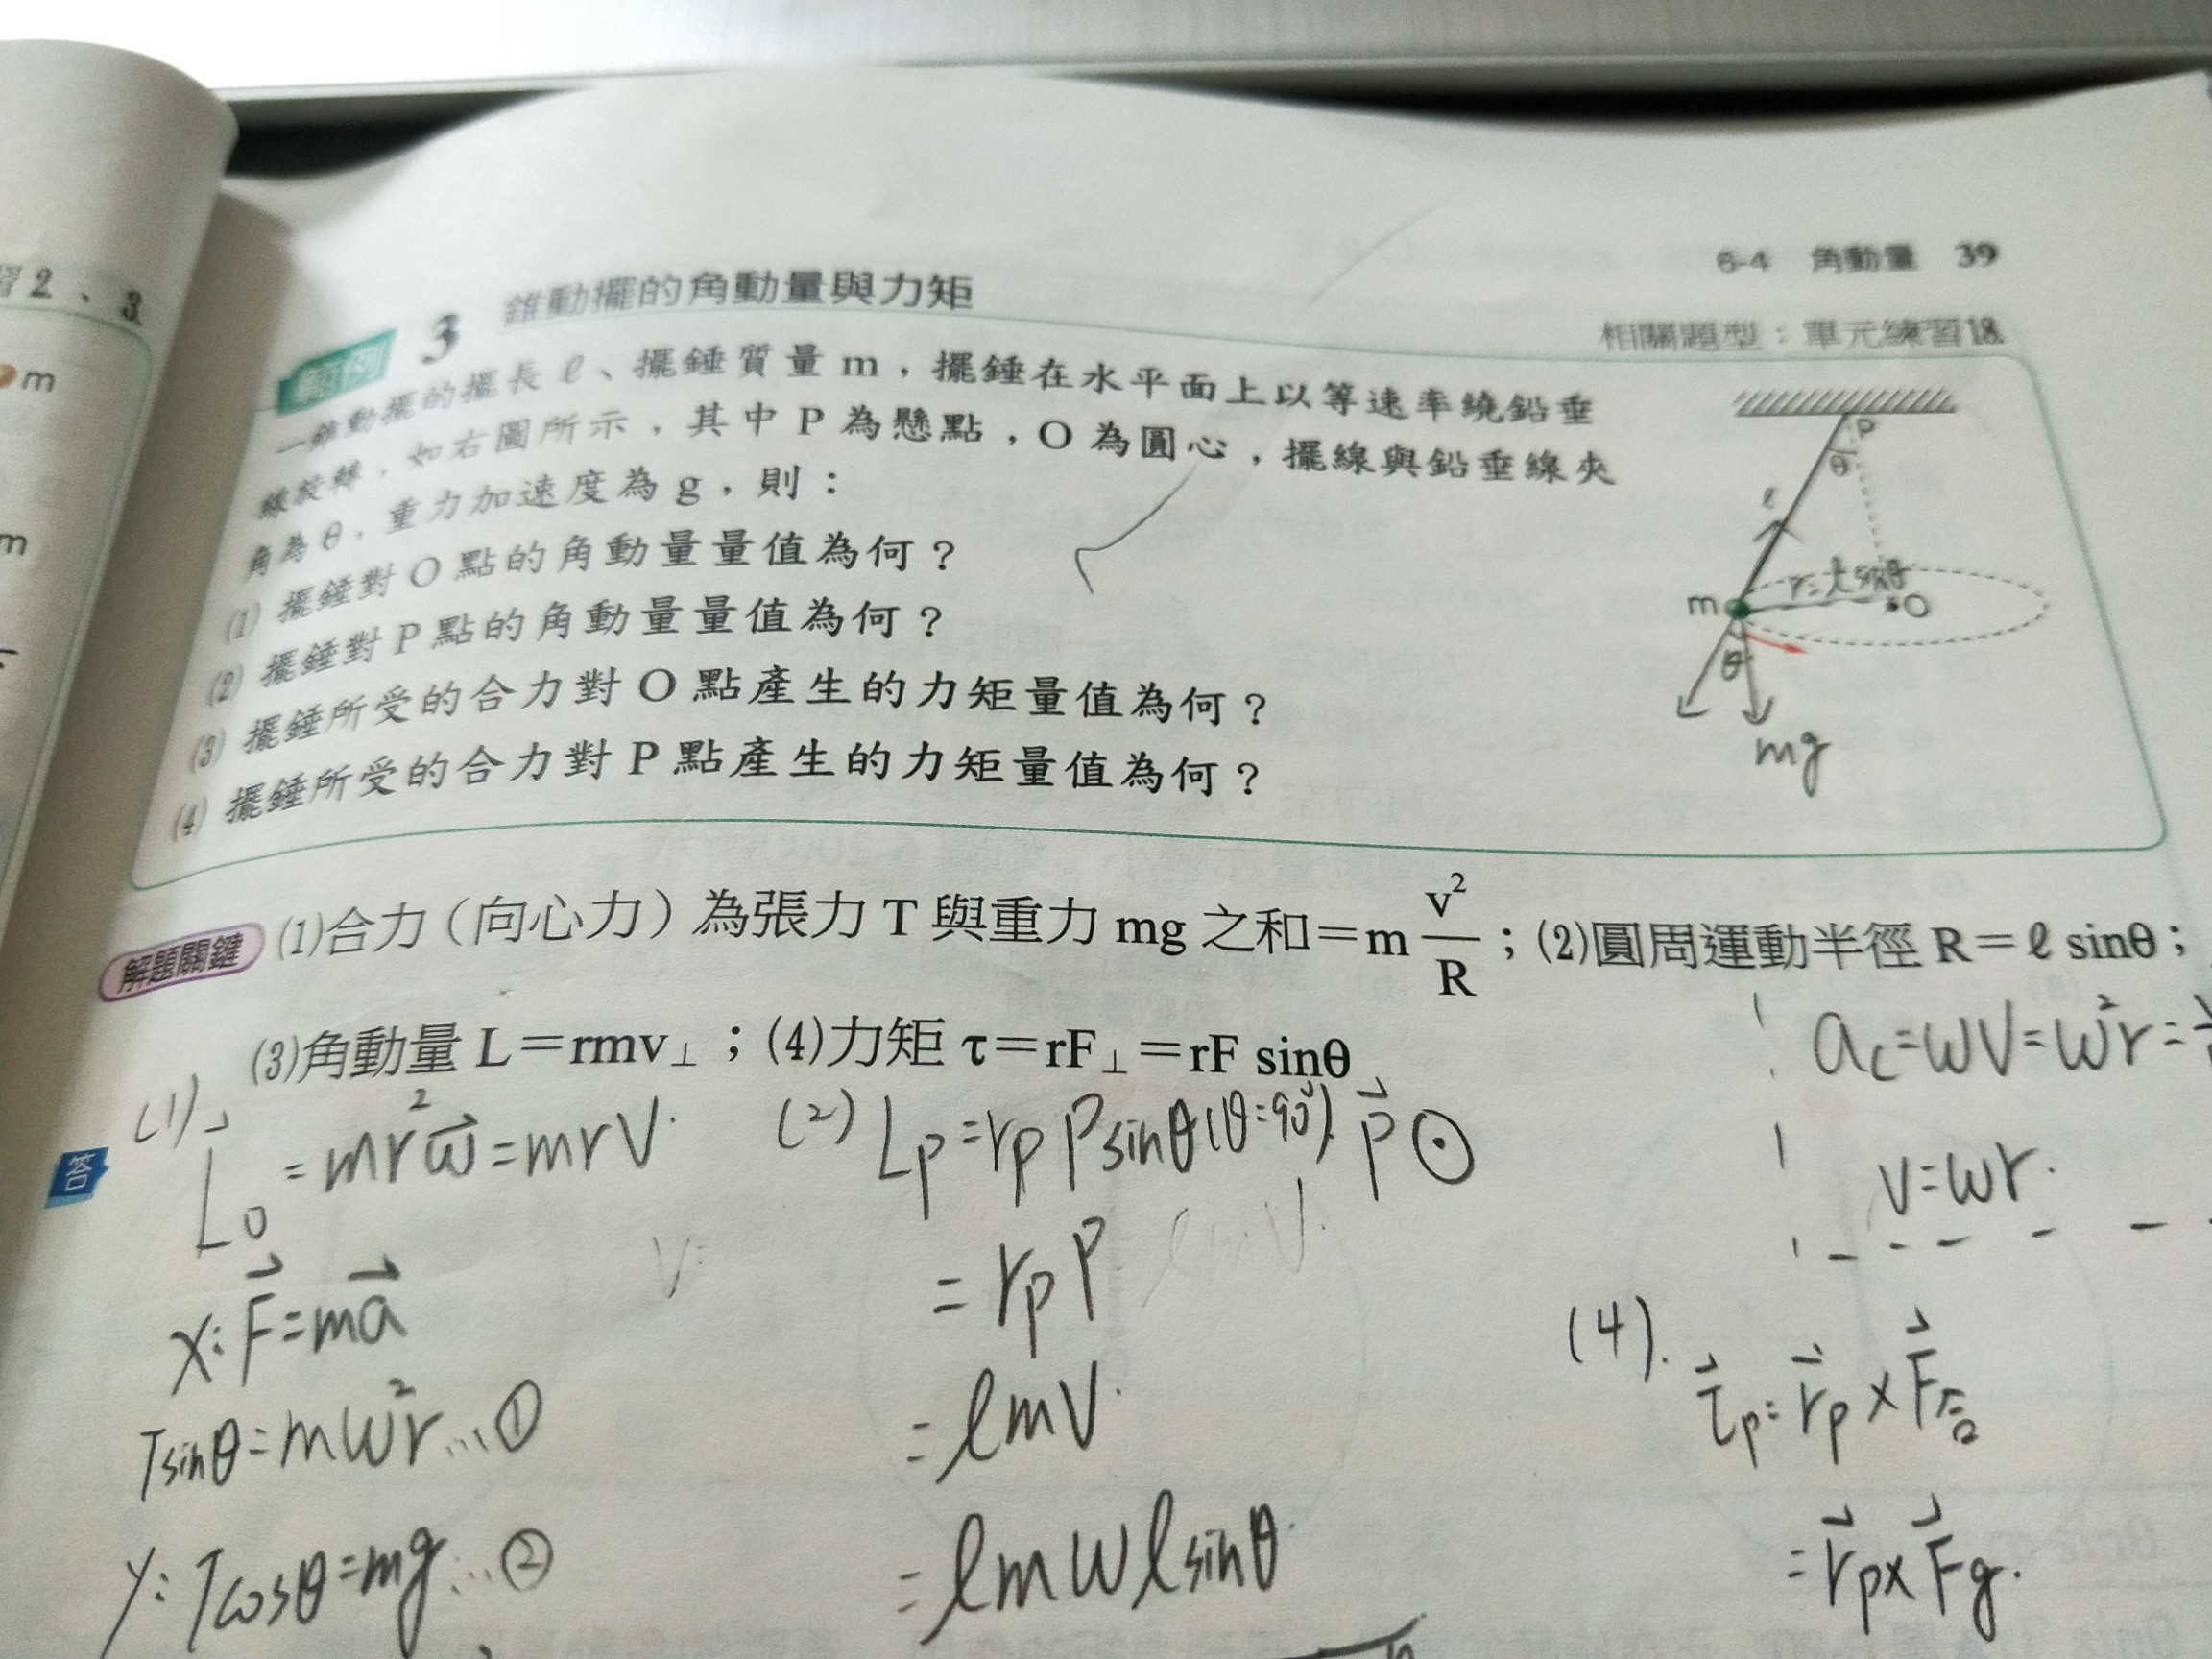 習2、3
m
m
6-4 角動量 39
3 錐動擺的角動量與力矩
相關題型：單元練習18.
一錐動擺的擺長 ℓ、擺錘質量 m，擺錘在水平面上以等速率繞鉛垂
線旋轉，如右圖所示，其中 P 為懸點，O 為圓心，擺線與鉛垂線夾
角為 θ，重力加速度為 g，則：
(1) 擺錘對 O 點的角動量量值為何？
(2) 擺錘對 P 點的角動量量值為何？
(3) 擺錘所受的合力對 O 點產生的力矩量值為何？
(4) 擺錘所受的合力對 P 點產生的力矩量值為何？
P
θ
ℓ
r=ℓsinθ
m
O
θ
mg
解題關鍵 (1)合力（向心力）為張力 T 與重力 mg 之和＝m v²/R；(2)圓周運動半徑 R＝ℓ sinθ；
(3)角動量 L＝rmv⊥；(4)力矩 τ＝rF⊥＝rF sinθ
答
(1) L⃗₀ = mr²ω⃗ = mrv.
x: F⃗ = ma⃗
Tsinθ = mω²r…①
y: Tcosθ = mg…②
V=
(2) Lp = rp P sinθ (θ=90°). P⃗ ⊙
= rp P
ℓmV.
= ℓmV.
= ℓmωℓsinθ
ac = ωV = ω²r =
V = ωr.
(4). τ⃗p = r⃗p × F⃗合
= r⃗p × F⃗g.